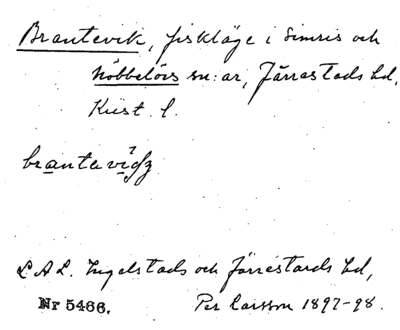 Brantevik, fiskläge i Simris och
Nöbbelövs sn:ar, Järrestads hd,
Krist. l.
brantaviɡ̣
L A L. Ingelstads och Järrestads hd,
Nr 5466. Per Larsson 1897-98.